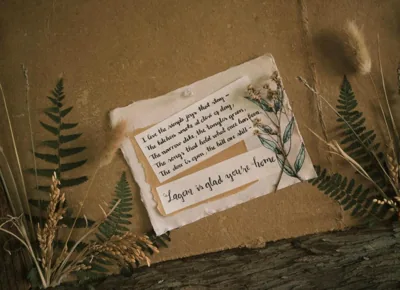 I love the simple joys that stay —
The kitchen smoke at close of day,
The narrow stile, the
The songs that hold what once has been,
The door is open, the hill still —
"Lagom is glad you're home."